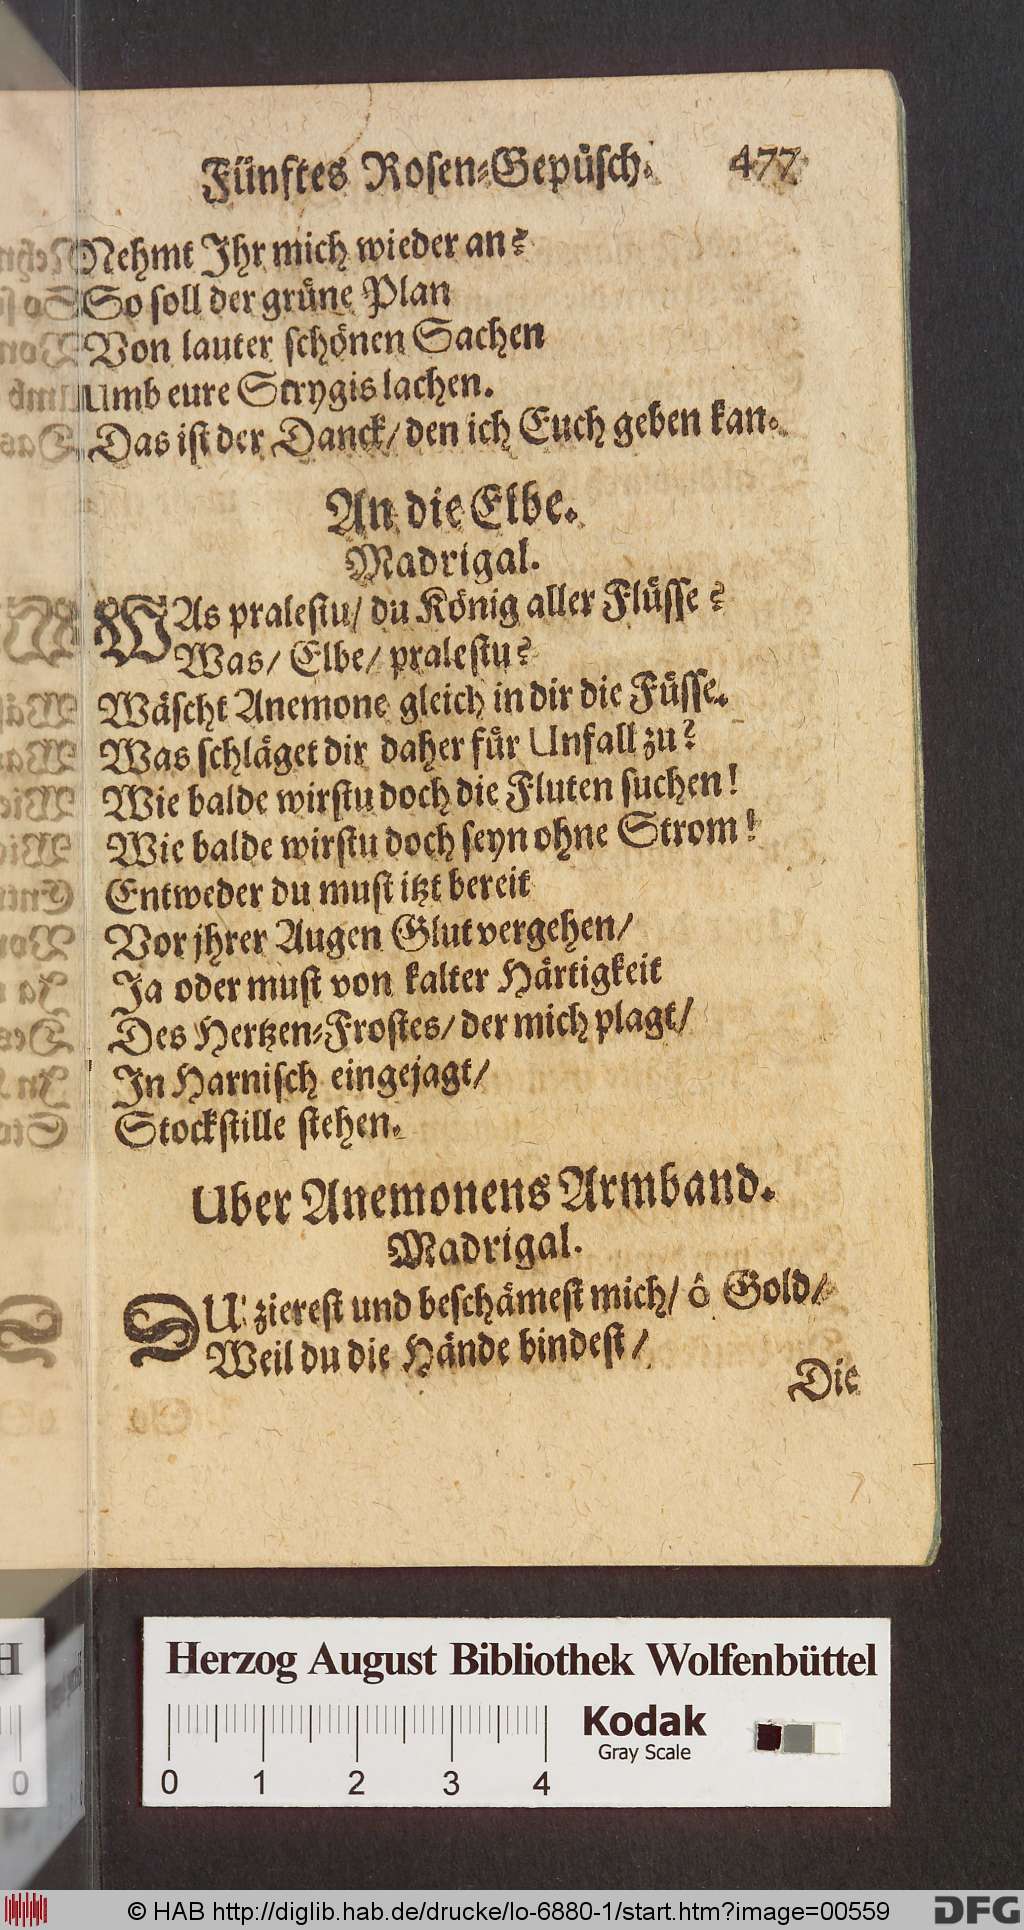 Fünftes Rosen-Gepüsch. 477
Nehmt Ihr mich wieder an?
So soll der grüne Plan
Von lauter schönen Sachen
Umb eure Strygis lachen.
Das ist der Danck/ den ich Euch geben kan.
An die Elbe.
Madrigal.
WAs pralestu/ du König aller Flüsse?
Was/ Elbe/ pralestu?
Wäscht Anemone gleich in dir die Füsse.
Was schläget dir daher für Unfall zu?
Wie balde wirstu doch die Fluten suchen!
Wie balde wirstu doch seyn ohne Strom!
Entweder du must itzt bereit
Vor jhrer Augen Glut vergehen/
Ja oder must von kalter Härtigkeit
Des Hertzen-Frostes/ der mich plagt/
In Harnisch eingejagt/
Stockstille stehen.
Uber Anemonens Armband.
Madrigal.
DU zierest und beschämest mich/ ô Gold/
Weil du die Hände bindest/
Die
Herzog August Bibliothek Wolfenbüttel
0 1 2 3 4
Kodak
Gray Scale
© HAB http://diglib.hab.de/drucke/lo-6880-1/start.htm?image=00559
DFG